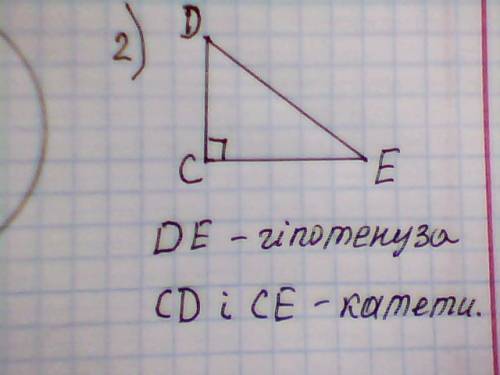 2)
D
C
E
DE - гіпотенуза
CD і CE - катети.